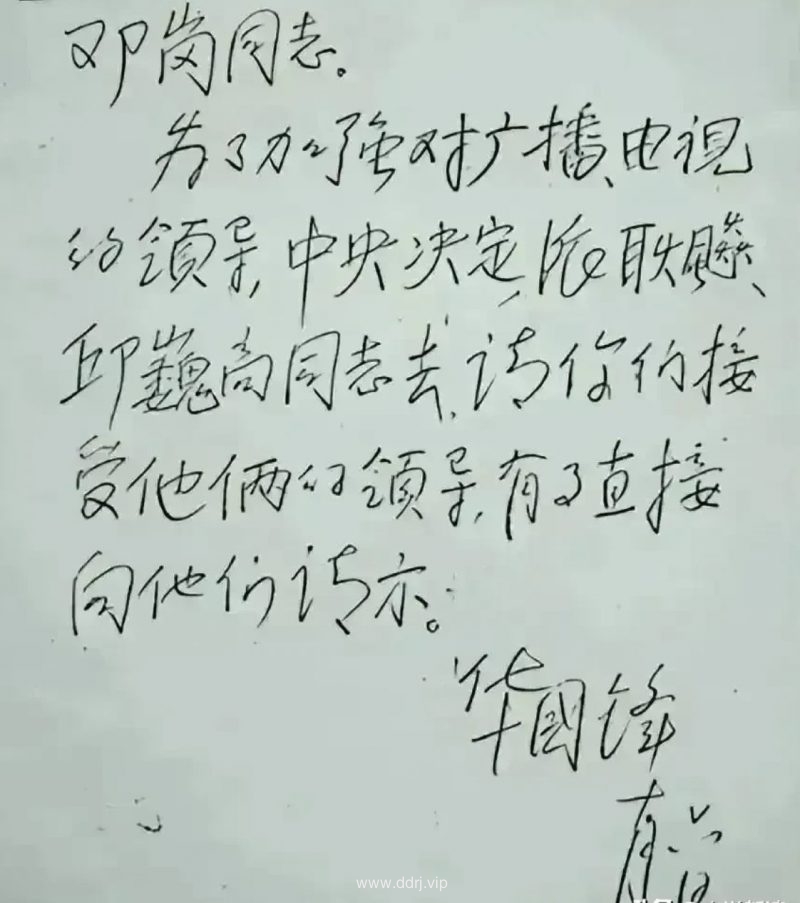 邓岗同志。
为了加强对广播、电视
的領导,中央决定,派耿飚、
邱巍高同志去,请你们接
受他俩的領导,有了直接
向他们请示。
华國锋
www.ddrj.vip